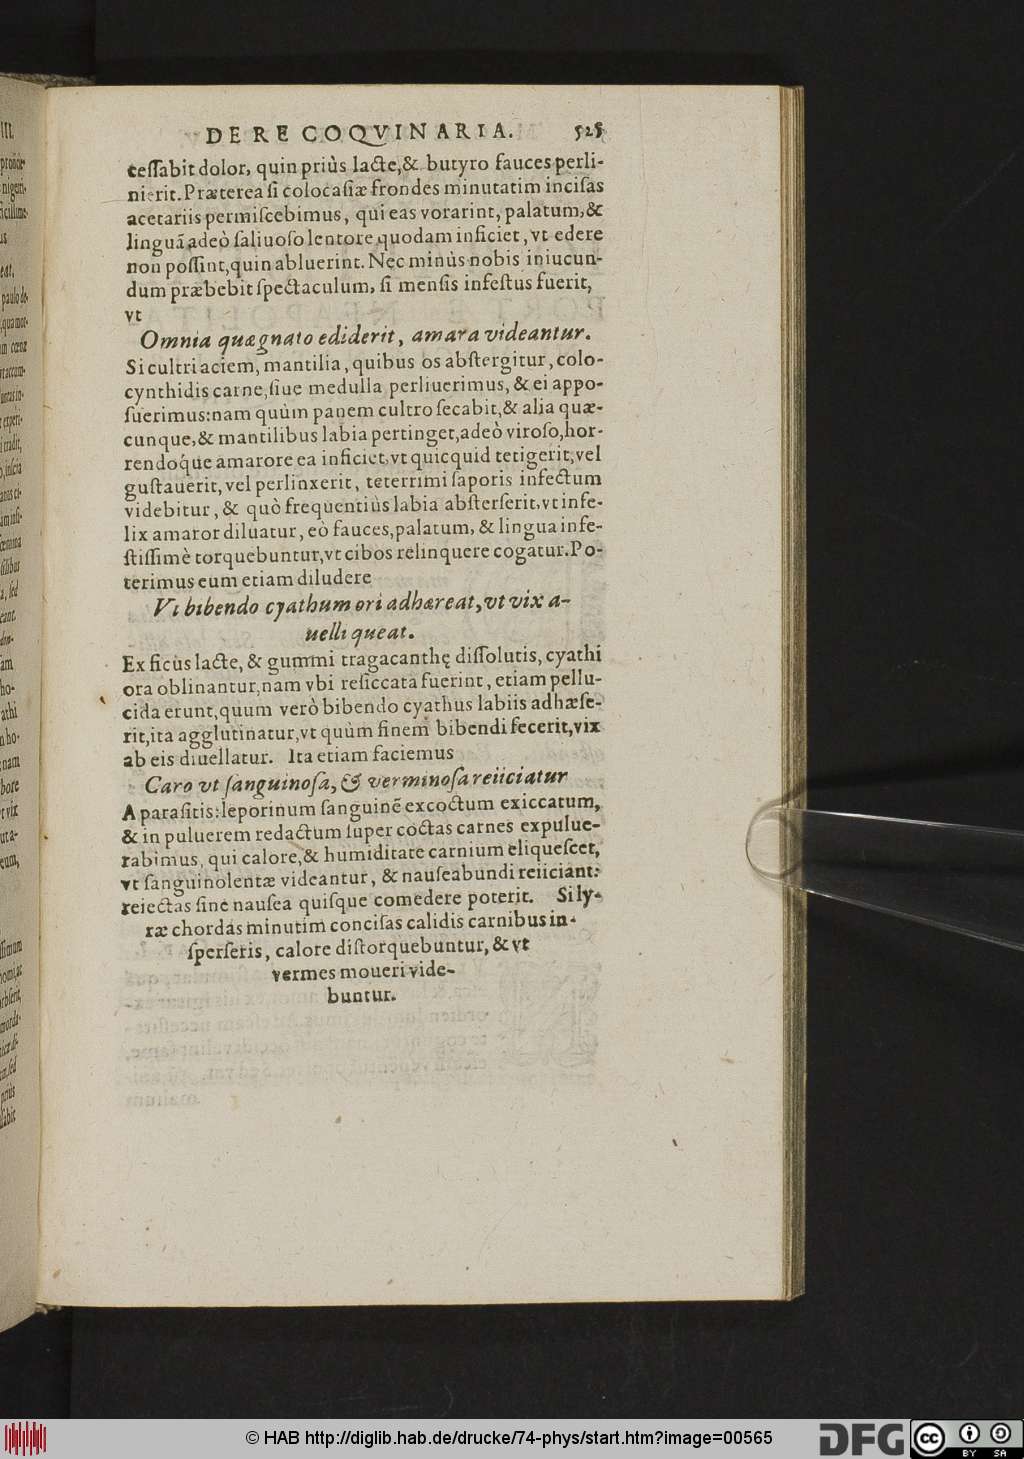 DE RE COQVINARIA. 525
cessabit dolor, quin priùs lacte, & butyro fauces perli-
nierit. Præterea si colocasiæ frondes minutatim incisas
acetariis permiscebimus, qui eas vorarint, palatum, &
linguã adeò saliuoso lentore quodam inficiet, vt edere
non possint, quin abluerint. Nec minùs nobis iniucun-
dum præbebit spectaculum, si mensis infestus fuerit,
vt
Omnia quæ gnato ediderit, amara videantur.
Si cultri aciem, mantilia, quibus os abstergitur, colo-
cynthidis carne, siue medulla perliuerimus, & ei appo-
suerimus: nam quùm panem cultro secabit, & alia quæ-
cunque, & mantilibus labia pertinget, adeò viroso, hor-
rendóque amarore ea inficiet, vt quicquid tetigerit, vel
gustauerit, vel perlinxerit, teterrimi saporis infectum
videbitur, & quò frequentiùs labia absterserit, vt infe-
lix amaror diluatur, eò fauces, palatum, & lingua infe-
stissimè torquebuntur, vt cibos relinquere cogatur. Po-
terimus eum etiam diludere
Vt bibendo cyathum ori adhæreat, vt vix a-
uelli queat.
Ex ficus lacte, & gummi tragacanthę dissolutis, cyathi
ora oblinantur, nam vbi resiccata fuerint, etiam pellu-
cida erunt, quum verò bibendo cyathus labiis adhæse-
rit, ita agglutinatur, vt quùm finem bibendi fecerit, vix
ab eis diuellatur. Ita etiam faciemus
Caro vt sanguinosa, & verminosa reiiciatur
A parasitis: leporinum sanguinẽ excoctum exiccatum,
& in puluerem redactum super coctas carnes expulue-
rabimus, qui calore, & humiditate carnium eliquescet,
vt sanguinolentæ videantur, & nauseabundi reiiciant:
reiectas sine nausea quisque comedere poterit. Si ly-
ræ chordas minutim concisas calidis carnibus in-
sperseris, calore distorquebuntur, & vt
vermes moueri vide-
buntur.
© HAB http://diglib.hab.de/drucke/74-phys/start.htm?image=00565
DFG
cc BY SA